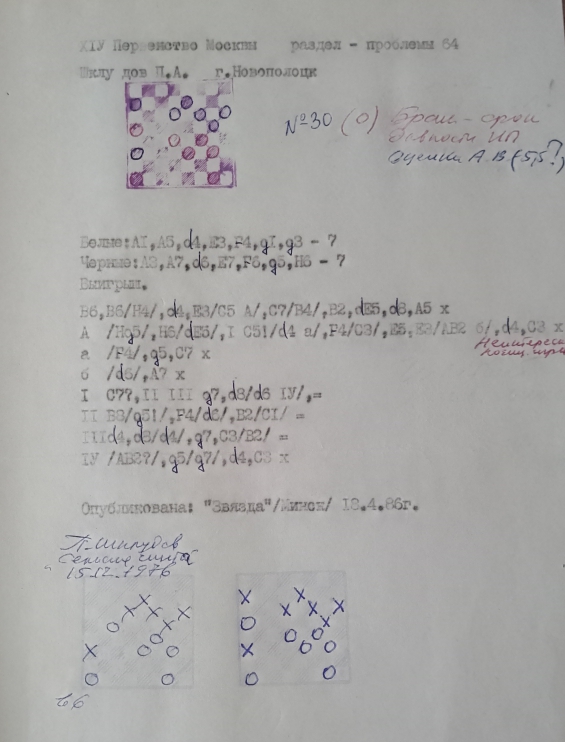 XIУ Первенство Москвы раздел - проблемы 64
Шклудов П.А. г.Новополоцк
№30 (0)
Оценка А.В (5,5?)
Белые:АI,А5,d4,Е3,F4,gI,g3 - 7
Черные:А3,А7,d6,Е7,F6,g5,Н6 - 7
Выигрыш.
В6,В6/Н4/,d4,Е3/С5 А/,С7/В4/,В2,dЕ5,d8,А5 х
А /Нg5/,Н6/dЕ5/,I С5!/d4 а/,F4/С3/,Е5,Е3/АВ2 б/,d4,С3 х
а /F4/,g5,С7 х
б /d6/,А7 х
I С7?,II III g7,d8/d6 IУ/,=
II В8/g5!/,F4/d6/,В2/СI/ =
IIId4,d8/d4/,g7,С3/В2/ =
IУ /АВ2?/,g5/g7/,d4,С3 х
Опубликована: "Звязда"/Минск/ I8.4.86г.
П.Шклудов
15.12.1976